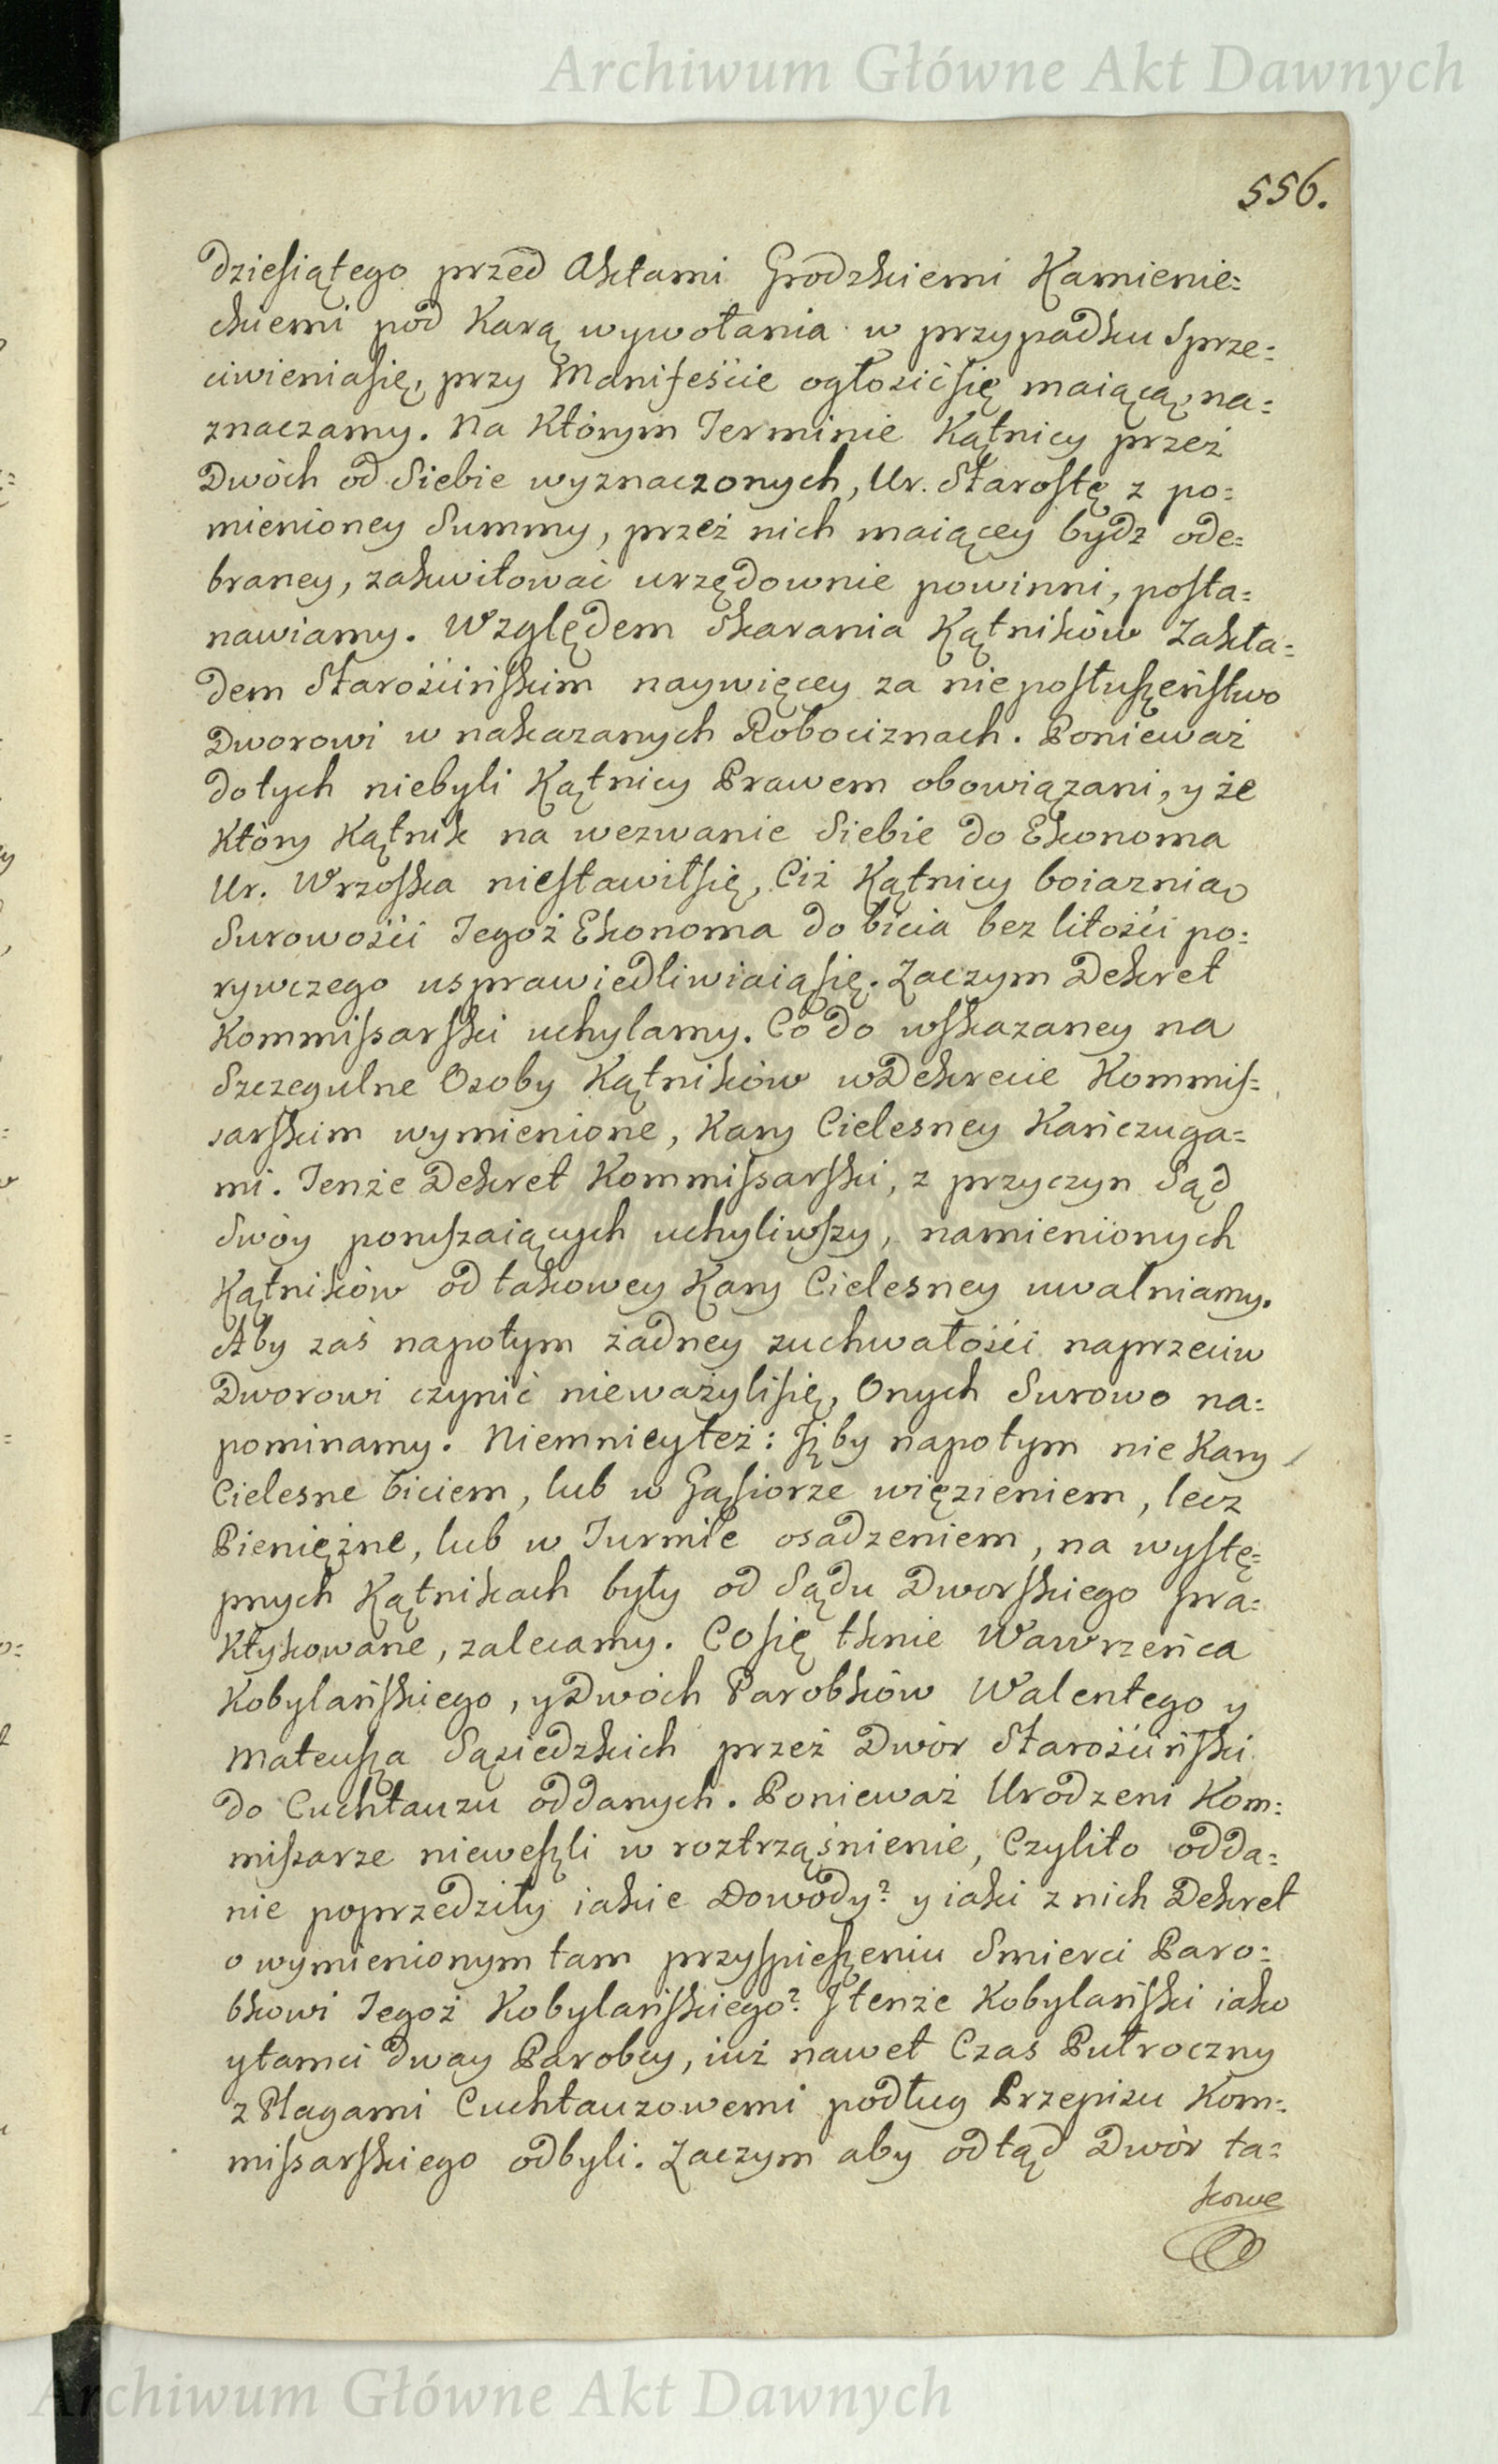 Archiwum Główne Akt Dawnych
556.
dziesiątego przed Aktami Grodzkiemi Kamienie=
ckiemi pod Karą wywołania w przypadku Sprze=
ciwieniasię, przy Manifeście ogłosićsię maiącą, na=
znaczamy. Na Którym Terminie Kątnicy przez
Dwóch od Siebie wyznaczonych, Ur. Starostę z po=
mienioney Summy, przez nich maiącey bydz ode=
braney, zakwitować urzędownie powinni, posta=
nawiamy. Względem Skarania Kątników Zakła=
dem Starościńskim naywięcey za nieposłuszeństwo
Dworowi w nakazanych Robociznach. Ponieważ
dotych niebyli Kątnicy Prawem obowiązani, y że
Który Kątnik na wezwanie Siebie do Ekonoma
Ur. Wrzoska niestawiłsię, Ciż Kątnicy boiaznią
Surowości Tegoż Ekonoma do bicia bez litości po=
rywczego usprawiedliwiaiąsię. Zaczym Dekret
Kommissarski uchylamy. Co do wskazaney na
Szczegulne Osoby Kątników w Dekrecie Kommis=
sarskim wymienione, Kary Cielesney Kańczuga=
mi. Tenże Dekret Kommissarski, z przyczyn Sąd
Swóy poruszaiących uchyliwszy, namienionych
Kątników od takowey Kary Cielesney uwalniamy.
Aby zaś napotym żadney zuchwałości naprzeciw
Dworowi czynić nieważylisię, Onych Surowo na=
pominamy. Niemnieyteż: Iżby napotym nie Kary
Cielesne biciem, lub w Gąsiorze więzieniem, lecz
Pieniężne, lub w Turmie osadzeniem, na wystę=
pnych Kątnikach były od Sądu Dworskiego pra=
ktykowane, zalecamy. Cosię tknie Wawrzeńca
Kobylańskiego, y Dwóch Parobków Walentego y
Mateusza Sąsiedzkich przez Dwór Starościński
do Cuchtauzu oddanych. Ponieważ Urodzeni Kom=
missarze nieweszli w roztrząśnienie, Czylito odda=
nie poprzedziły iakie Dowody? y iaki z nich Dekret
o wymienionym tam przyspieszeniu Smierci Paro=
bkowi Tegoż Kobylańskiego? Iż tenże Kobylański iako
ytamci dway Parobcy, iuż nawet Czas Pułroczny
z Plagami Cuchtauzowemi podług Przepisu Kom=
missarskiego odbyli. Zaczym aby odtąd Dwór ta=
kowe
Archiwum Główne Akt Dawnych